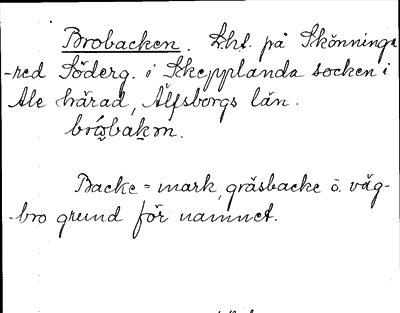 Brobacken. Lht. på Skönninga
-red Söderg. i Skepplanda socken i
Ale härad, Älfsborgs län.
Backe = mark, gräsbacke o. väg-
-bro grund för namnet.